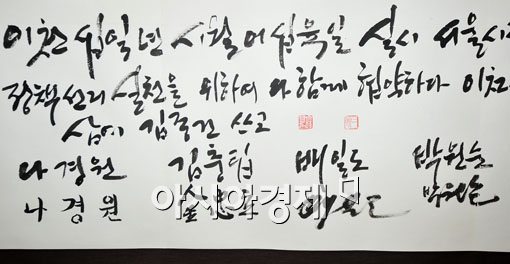 이천 십일 년 시월 이십육일 실시 서울시
정책선거 실천을 위하여 다함께 협약하다 이천
쓰고
나경원 김충립 배일도 박원순
나경원 배일도 박원순
아시아경제